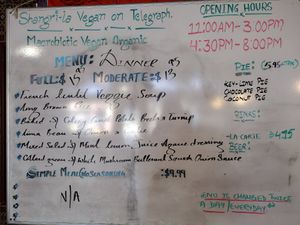 Shangri-la Vegan on Telegraph
Macrobiotic Vegan Organic
MENU: DINNER
FULL: $ MODERATE: $
French Lentil Veggie Soup
Long Brown Rice
Baked Celery Potato Turnip
Lima Bean
Mixed Salad Lemon Juice Agave dressing
Collard green Mushroom Butternut Squash Sauce
SIMPLE MEAL (NO SEASONING) $9.99
N/A
OPENING HOURS
11:00AM - 3:00PM
4:30PM - 8:00PM
PIE:
KEY-LIME PIE
CHOCOLATE PIE
COCONUT PIE
LA CARTE $4.95
BEER
MENU IS CHANGED TWICE
A DAY EVERYDAY